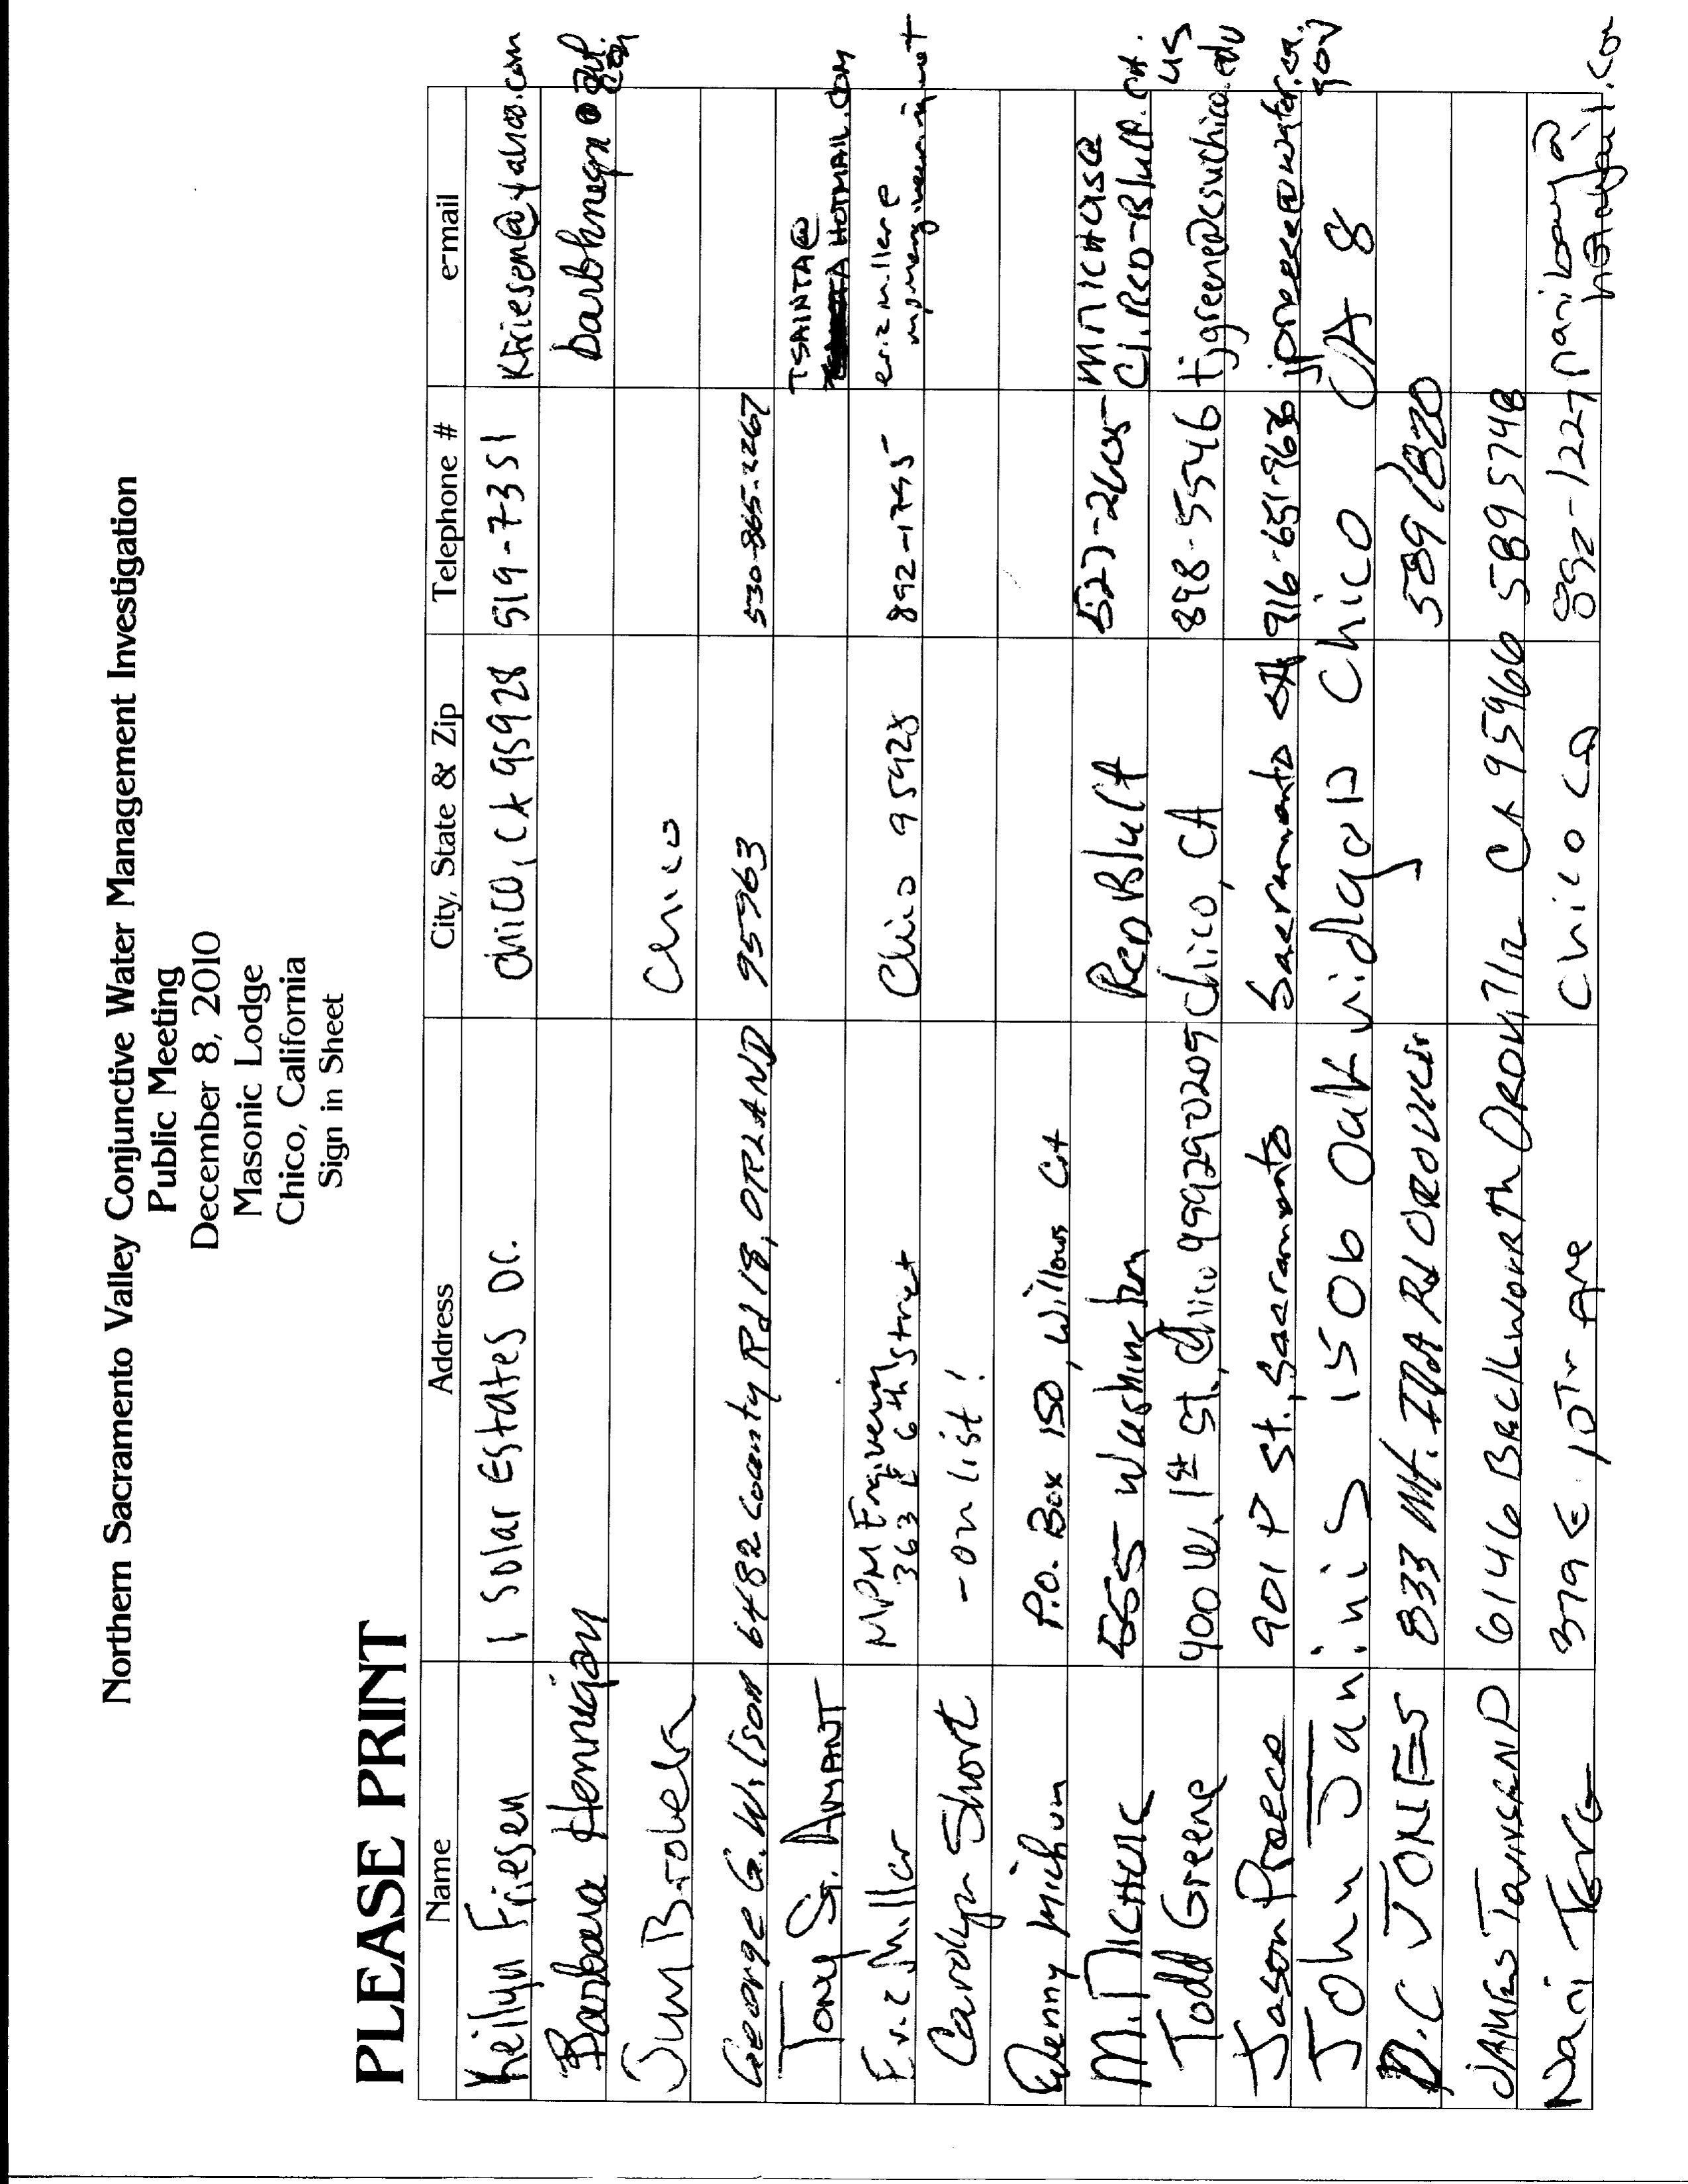 Northern Sacramento Valley Conjunctive Water Management Investigation
Public Meeting
December 8, 2010
Masonic Lodge
Chico, California
Sign in Sheet
PLEASE PRINT
Name Address City, State & Zip Telephone # e-mail
Keilyn Friesen 1 Solar Estates Dr. Chico, CA 95928 519-7351 KFriesen@yahoo.com
Barbara Hennigan barbhnegn@
Jim Brobeck Chico
George G. Wilson 6482 County Rd 18, ORLAND 95963 530-865-2267
Tony St. Amant TSAINTA@
HOTMAIL.COM
Eric Miller MPM Engineering
363 E 6th Street Chico 95928 892-1745 ericmiller@
mpmengineering.net
Carolyn Short - on list!
Denny Michum P.O. Box 150, Willows CA
M. Nichols 555 Washington Red Bluff 527-2605
CI.RED-BLUFF.CA.
US
Todd Greene 400 W. 1st St, Chico Chico, CA 898-5546 tjgreene@csuchico.edu
Jason Preece 901 P St., Sacramento Sacramento CA 916-651-9636 jpreece@water.ca.
gov
John Janinis 1506 Oakridge Dr Chico CA 8
D.C JONES 833 Mt. IDA Rd OROVILLE 5891820
JAMES TOWNSEND 6146 Brackworth Oroville CA 95966 5895748
Nani Terg 319 E. 10th Ave Chico CA 892-1227 naniboay@
hotmail.com